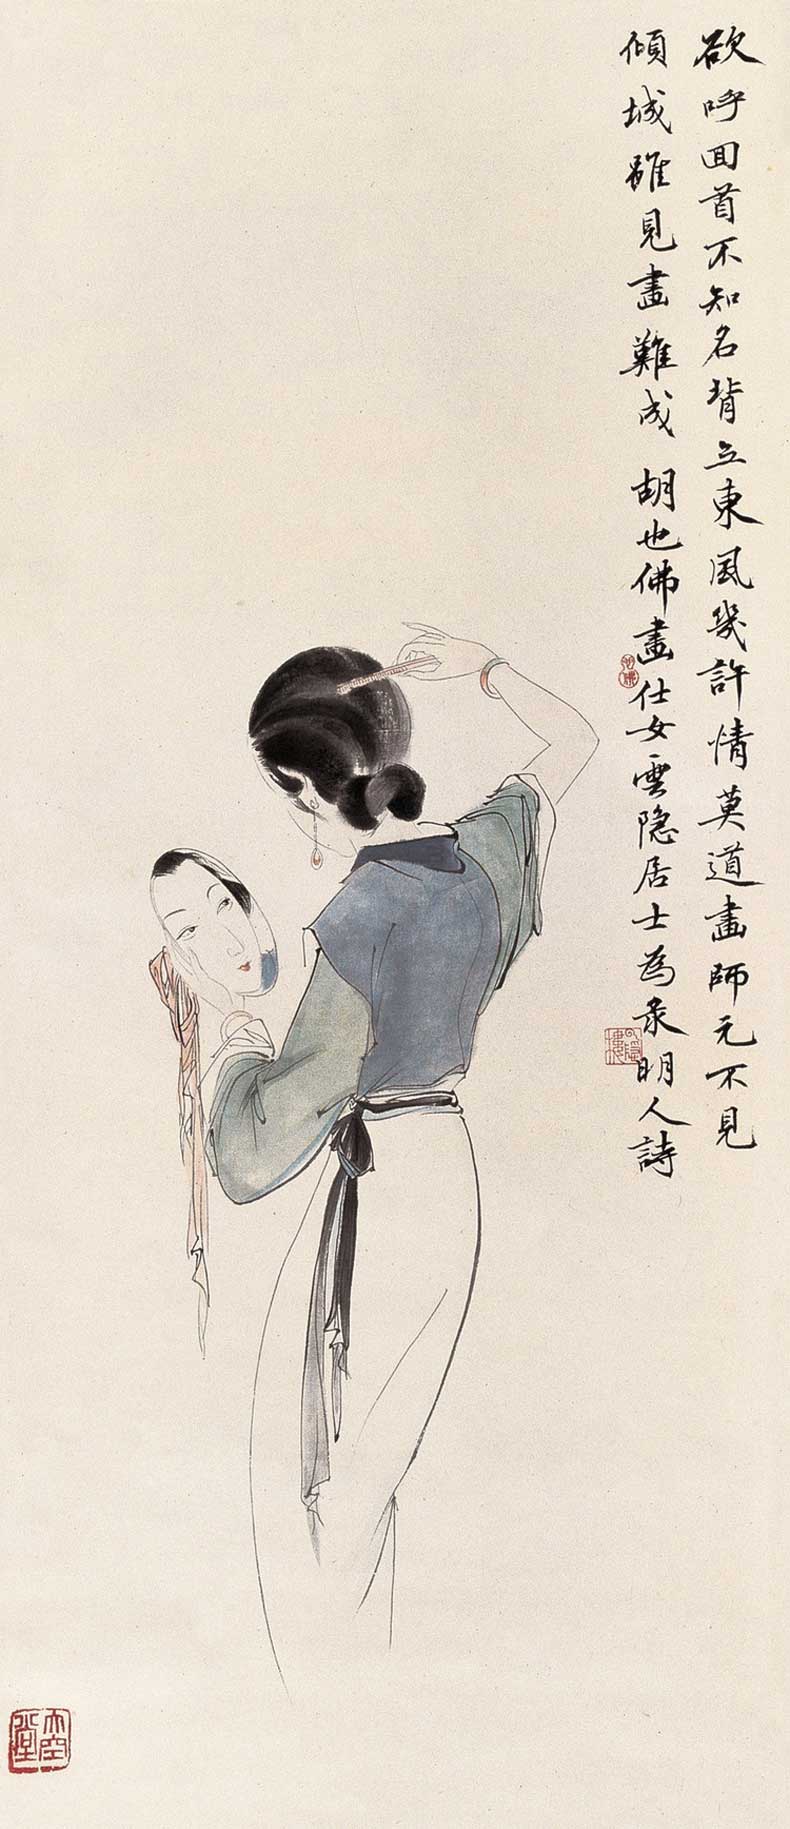 欲呼回首不知名背立東風幾許情莫道畫師元不見
傾城雖見畫難成 胡也佛畫仕女雲隐居士為录明人詩
也佛
大空堂